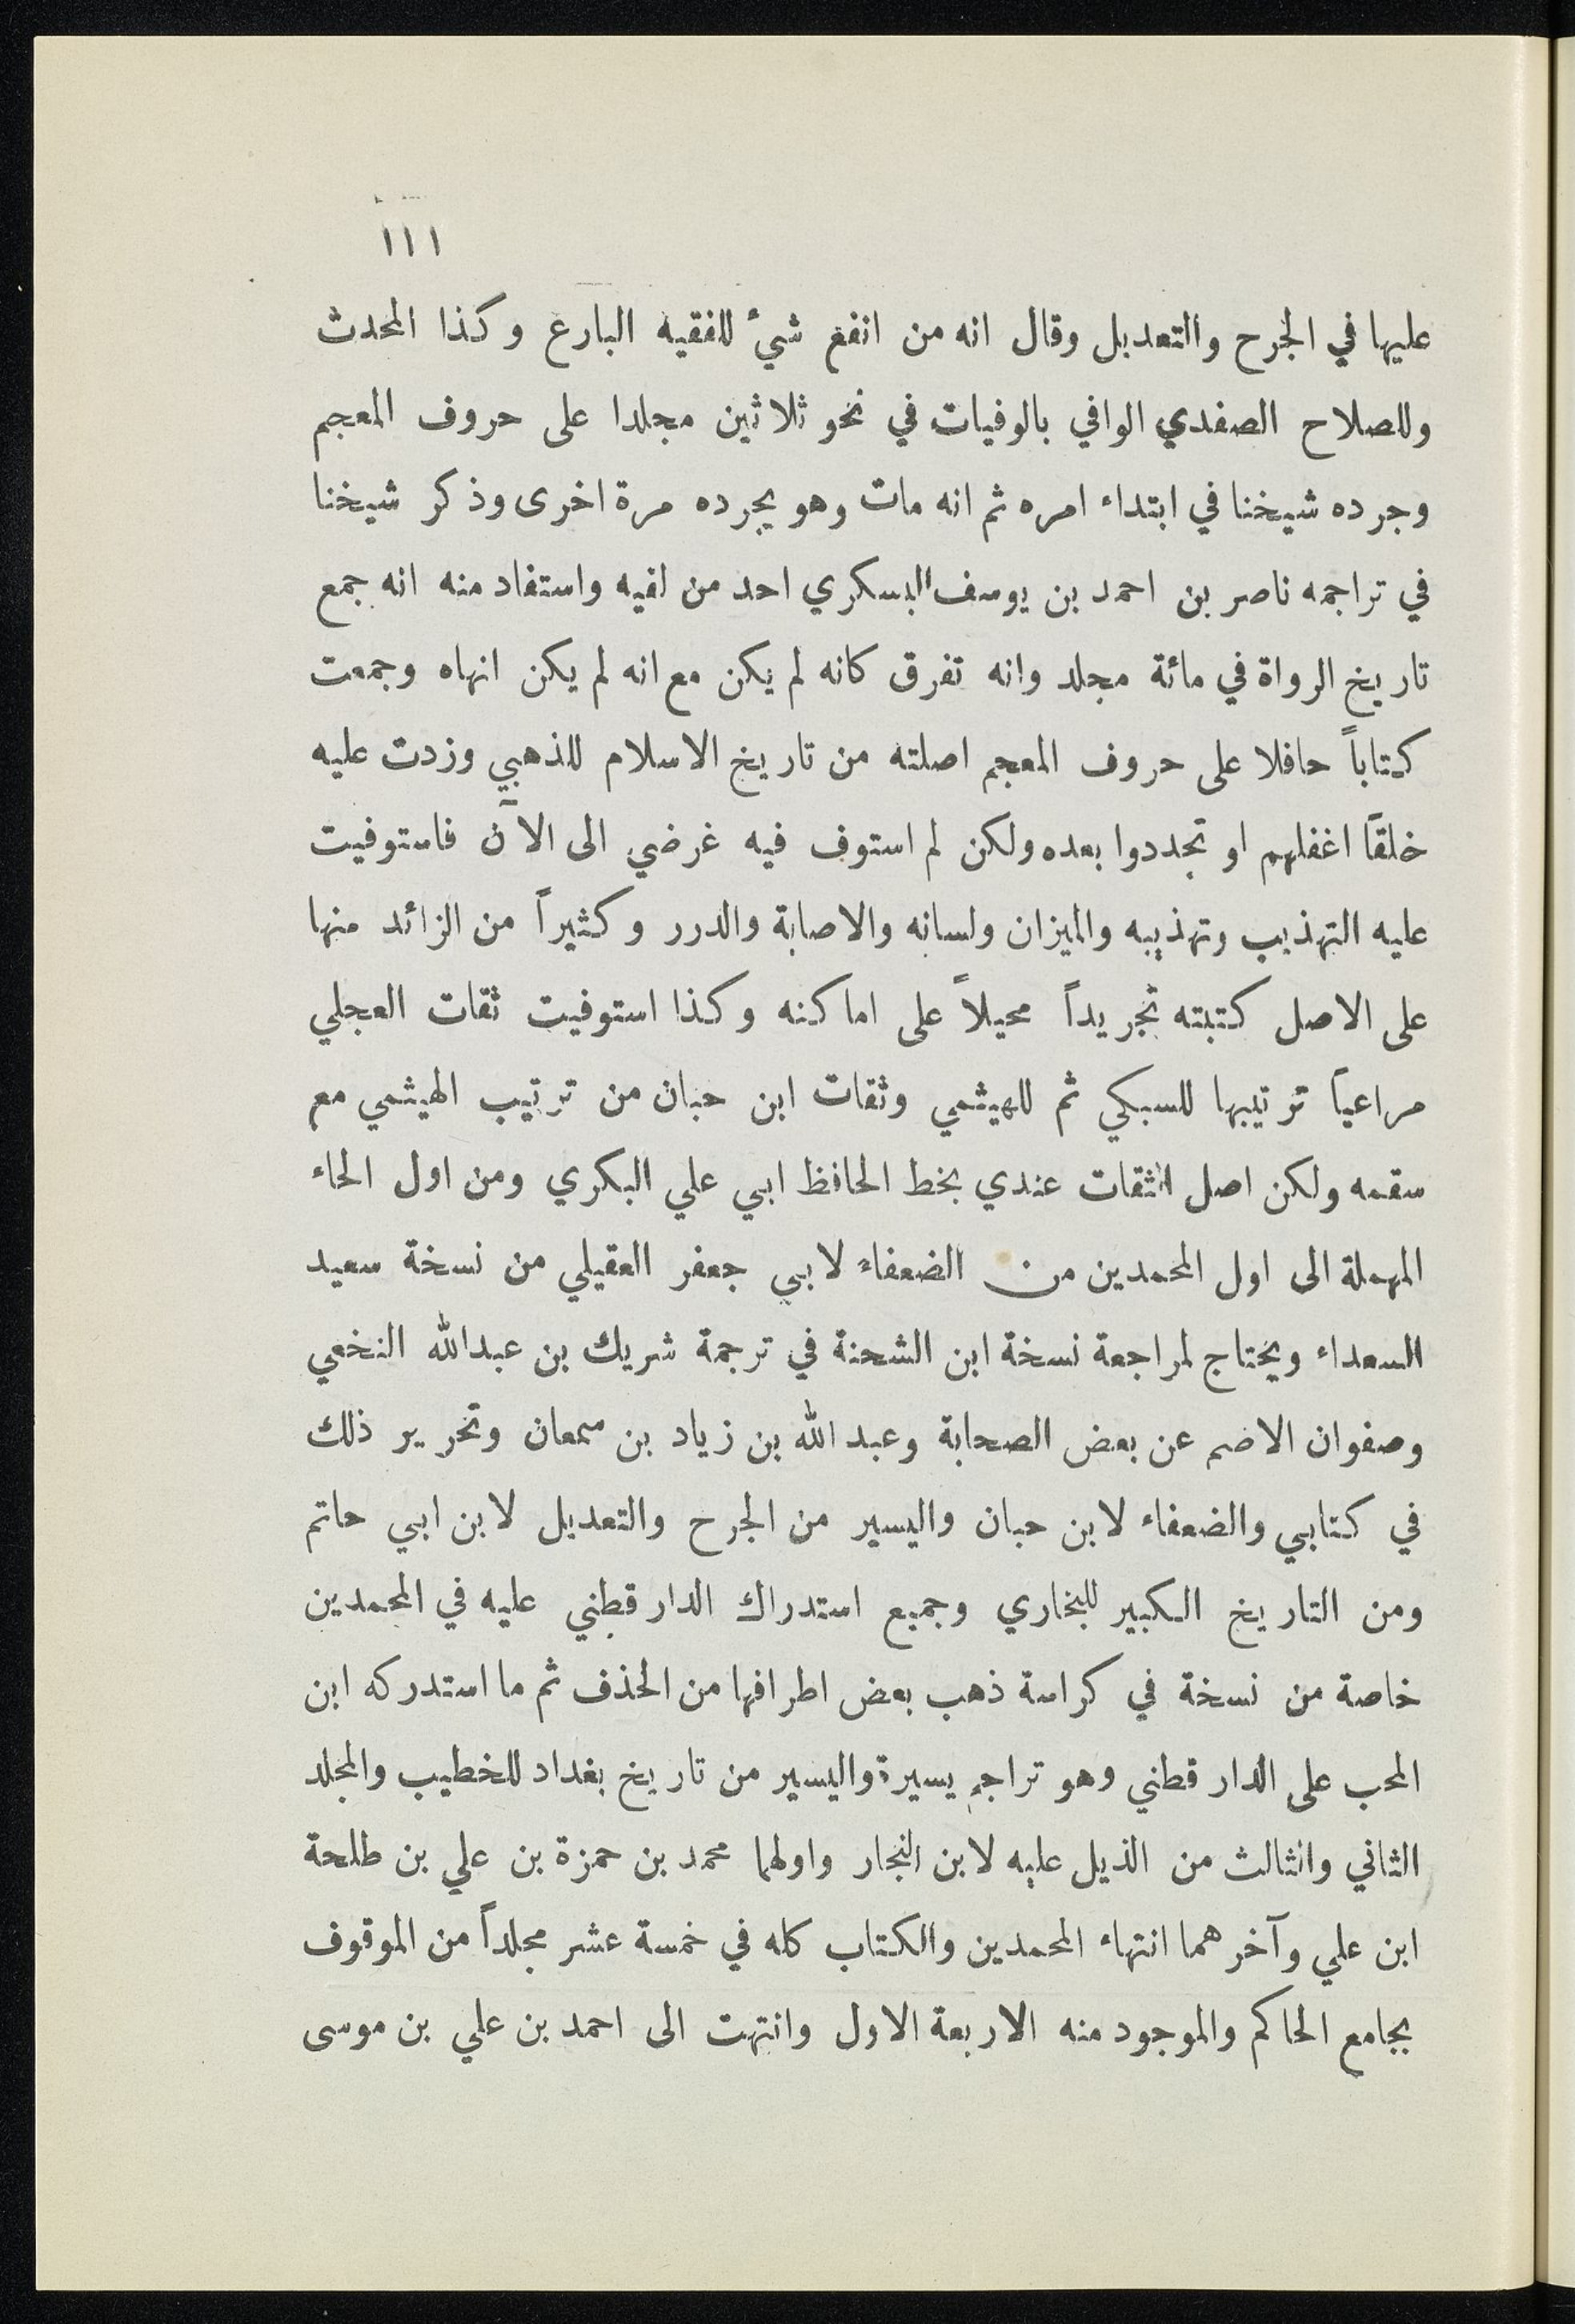 ١١١
عليها في الجرح والتعديل وقال انه من انفع شئ للفقيه البارع وكذا المحدث
وللصلاح الصفدي الوافي بالوفيات في نحو ثلاثين مجلدا على حروف المعجم
وجرده شيخنا في ابتداء امره ثم انه مات وهو يجرده مرة اخرى وذكر شيخنا
في تراجمه ناصر بن احمد بن يوسف البسكري احد من لقيه واستفاد منه انه جمع
تاريخ الرواة في مائة مجلد وانه تفرق كانه لم يكن مع انه لم يكن انهاه وجمعت
كتاباً حافلا على حروف المعجم اصلته من تاريخ الاسلام للذهبي وزدت عليه
خلقاً اغفلهم او تجددوا بعده ولكن لم استوف فيه غرضي الى الآن فاستوفيت
عليه التهذيب وتهذيبه والميزان ولسانه والاصابة والدرر وكثيراً من الزائد منها
على الاصل كتبته تجريداً محيلاً على اماكنه وكذا استوفيت ثقات العجلي
مراعياً ترتيبها للسبكي ثم للهيثمي وثقات ابن حبان من ترتيب الهيثمي مع
سقمه ولكن اصل الثقات عندي بخط الحافظ ابي علي البكري ومن اول الحاء
المهملة الى اول المحمدين من الضعفاء لابي جعفر العقيلي من نسخة سعيد
السعداء ويحتاج لمراجعة نسخة ابن الشحنة في ترجمة شريك بن عبدالله النخعي
وصفوان الاضم عن بعض الصحابة وعبد الله بن زياد بن سمعان وتحرير ذلك
في كتابي والضعفاء لابن حبان واليسير من الجرح والتعديل لابن ابي حاتم
ومن التاريخ الكبير للبخاري وجميع استدراك الدار قطني عليه في المحمدين
خاصة من نسخة في كراسة ذهب بعض اطرافها من الحذف ثم ما استدركه ابن
المحب على الدار قطني وهو تراجم يسيرة واليسير من تاريخ بغداد للخطيب والمجلد
الثاني والثالث من الذيل عليه لابن النجار واولهما محمد بن حمزة بن علي بن طلحة
ابن علي وآخرهما انتهاء المحمدين والكتاب كله في خمسة عشر مجلداً من الموقوف
بجامع الحاكم والموجود منه الاربعة الاول وانتهت الى احمد بن علي بن موسى